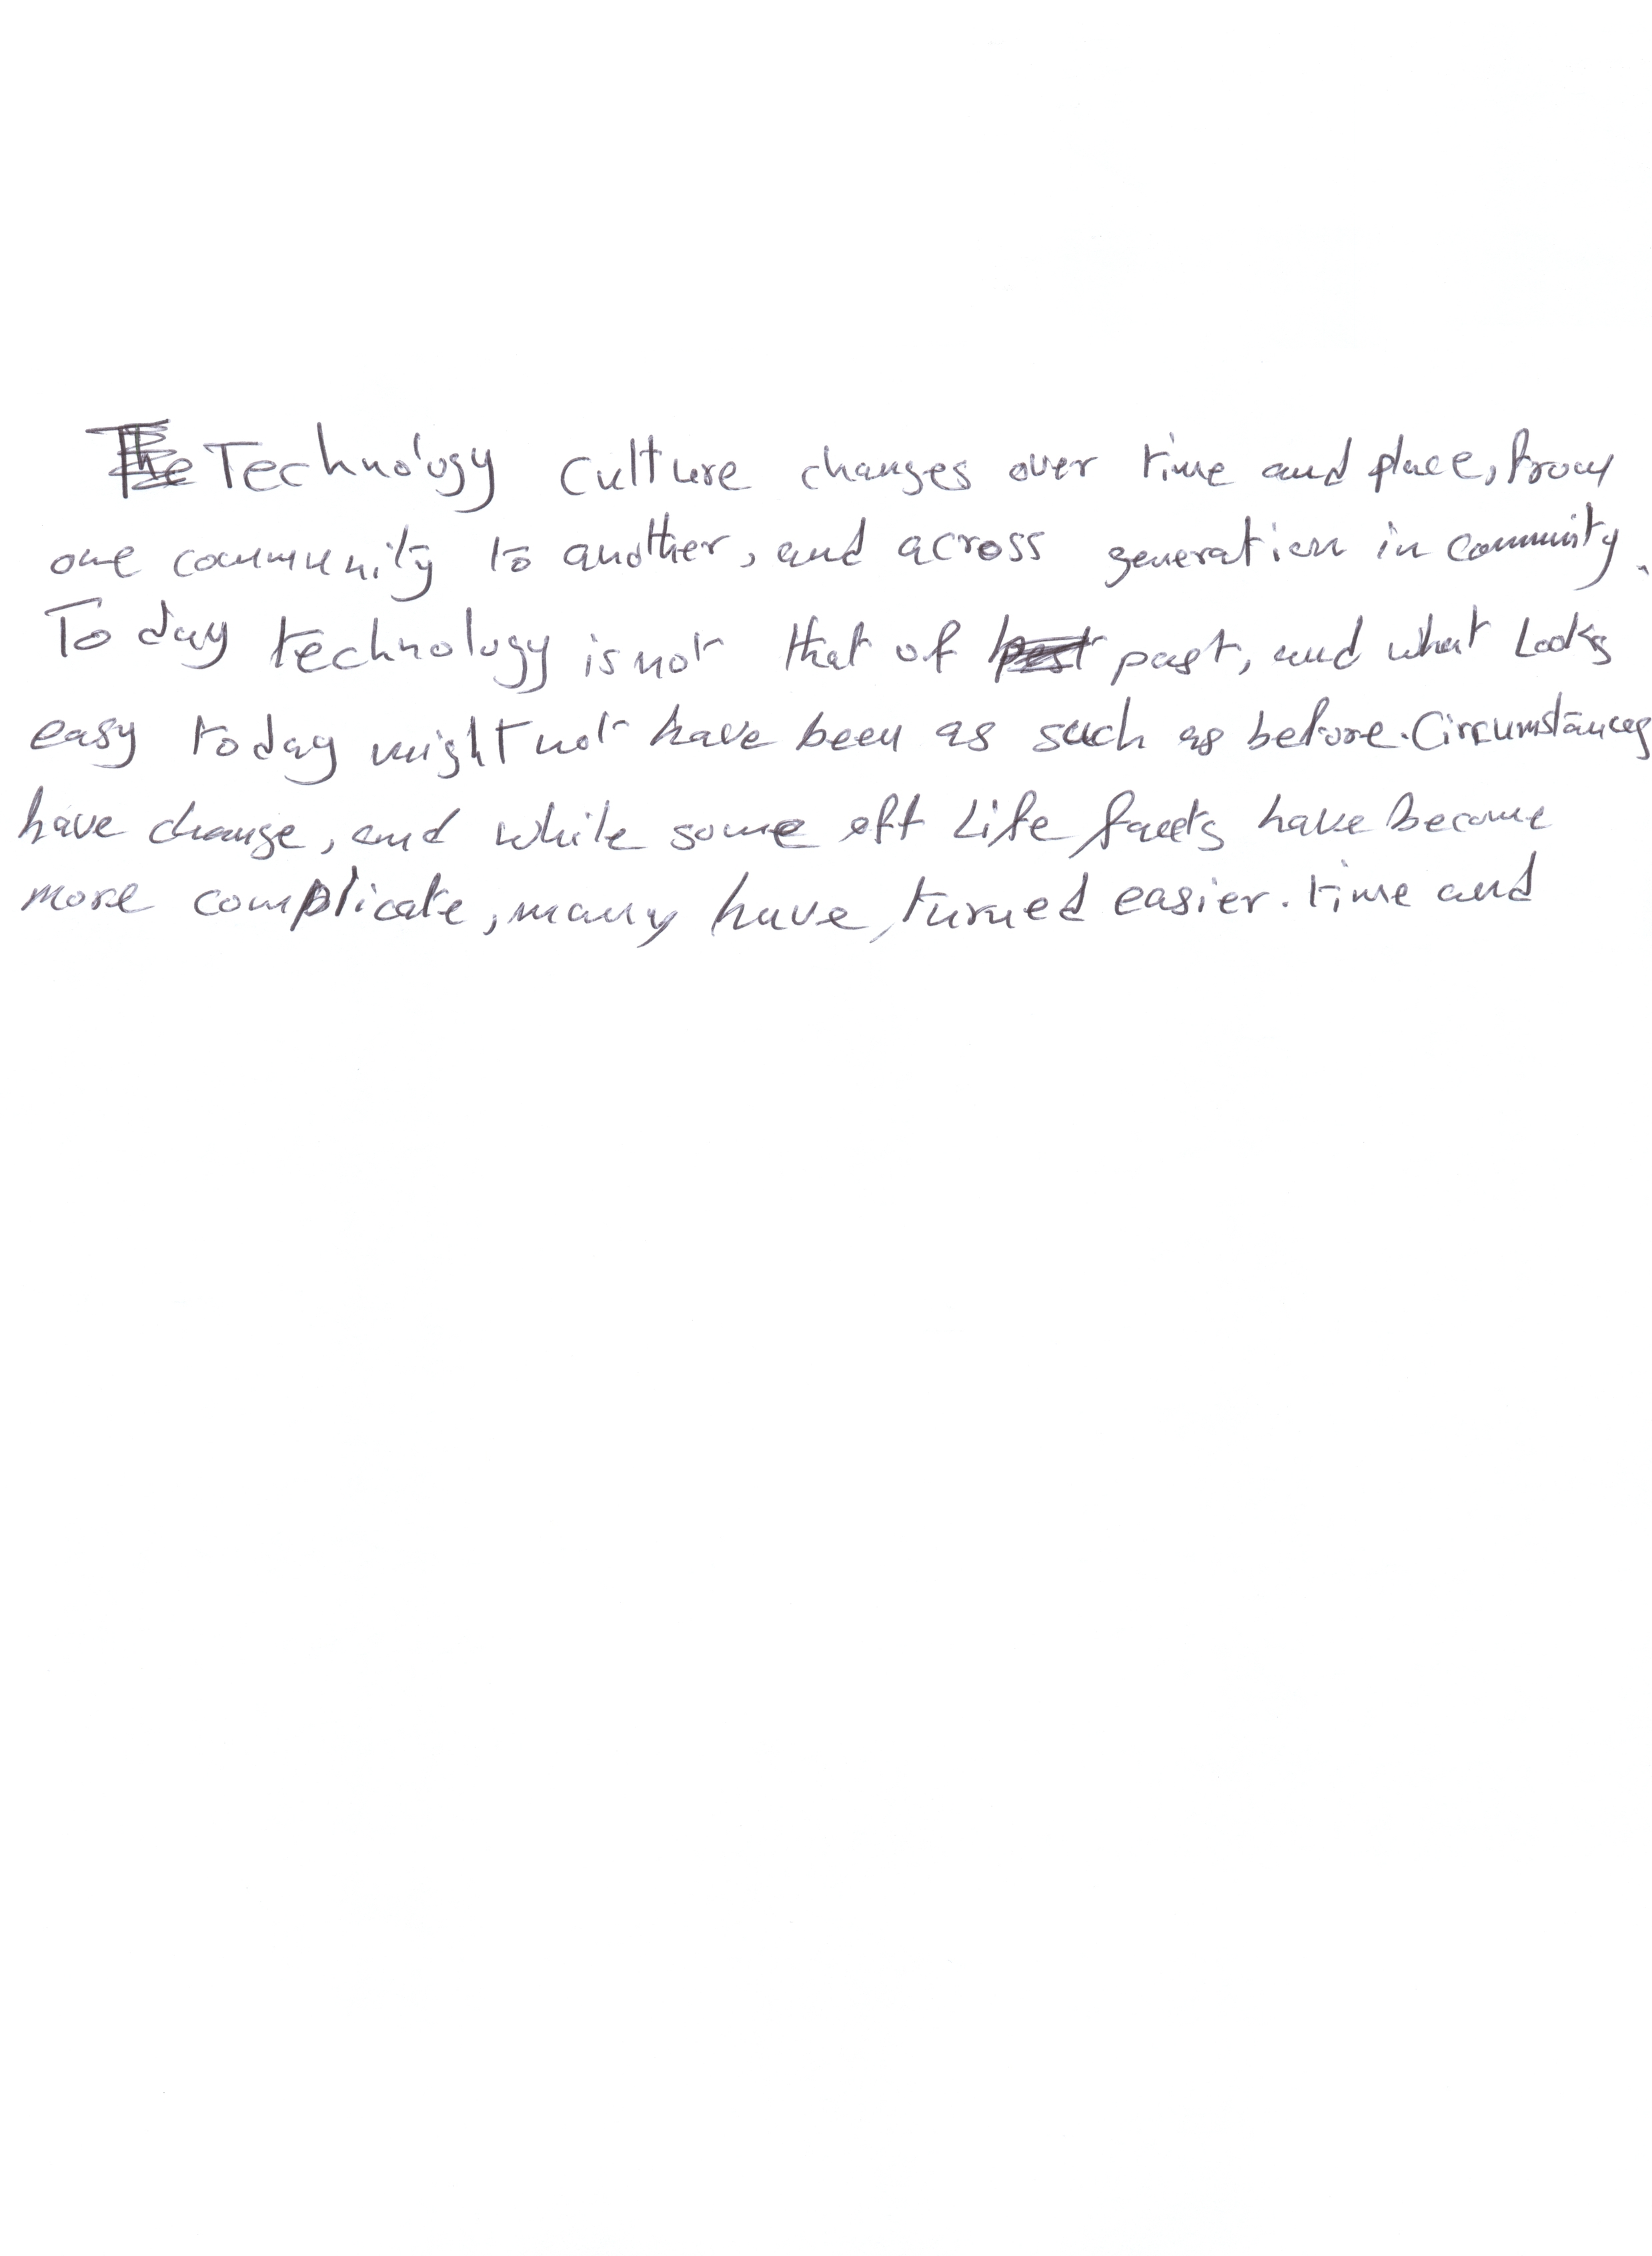 The Technology culture changes over time and place, from
one community to another, and across generation in community.
To day technology is not that of past, and what Looks
easy today might not have been as such as before. Circumstances
have change, and while some oft Life facets have become
more complicate, many have, turned easier. time and